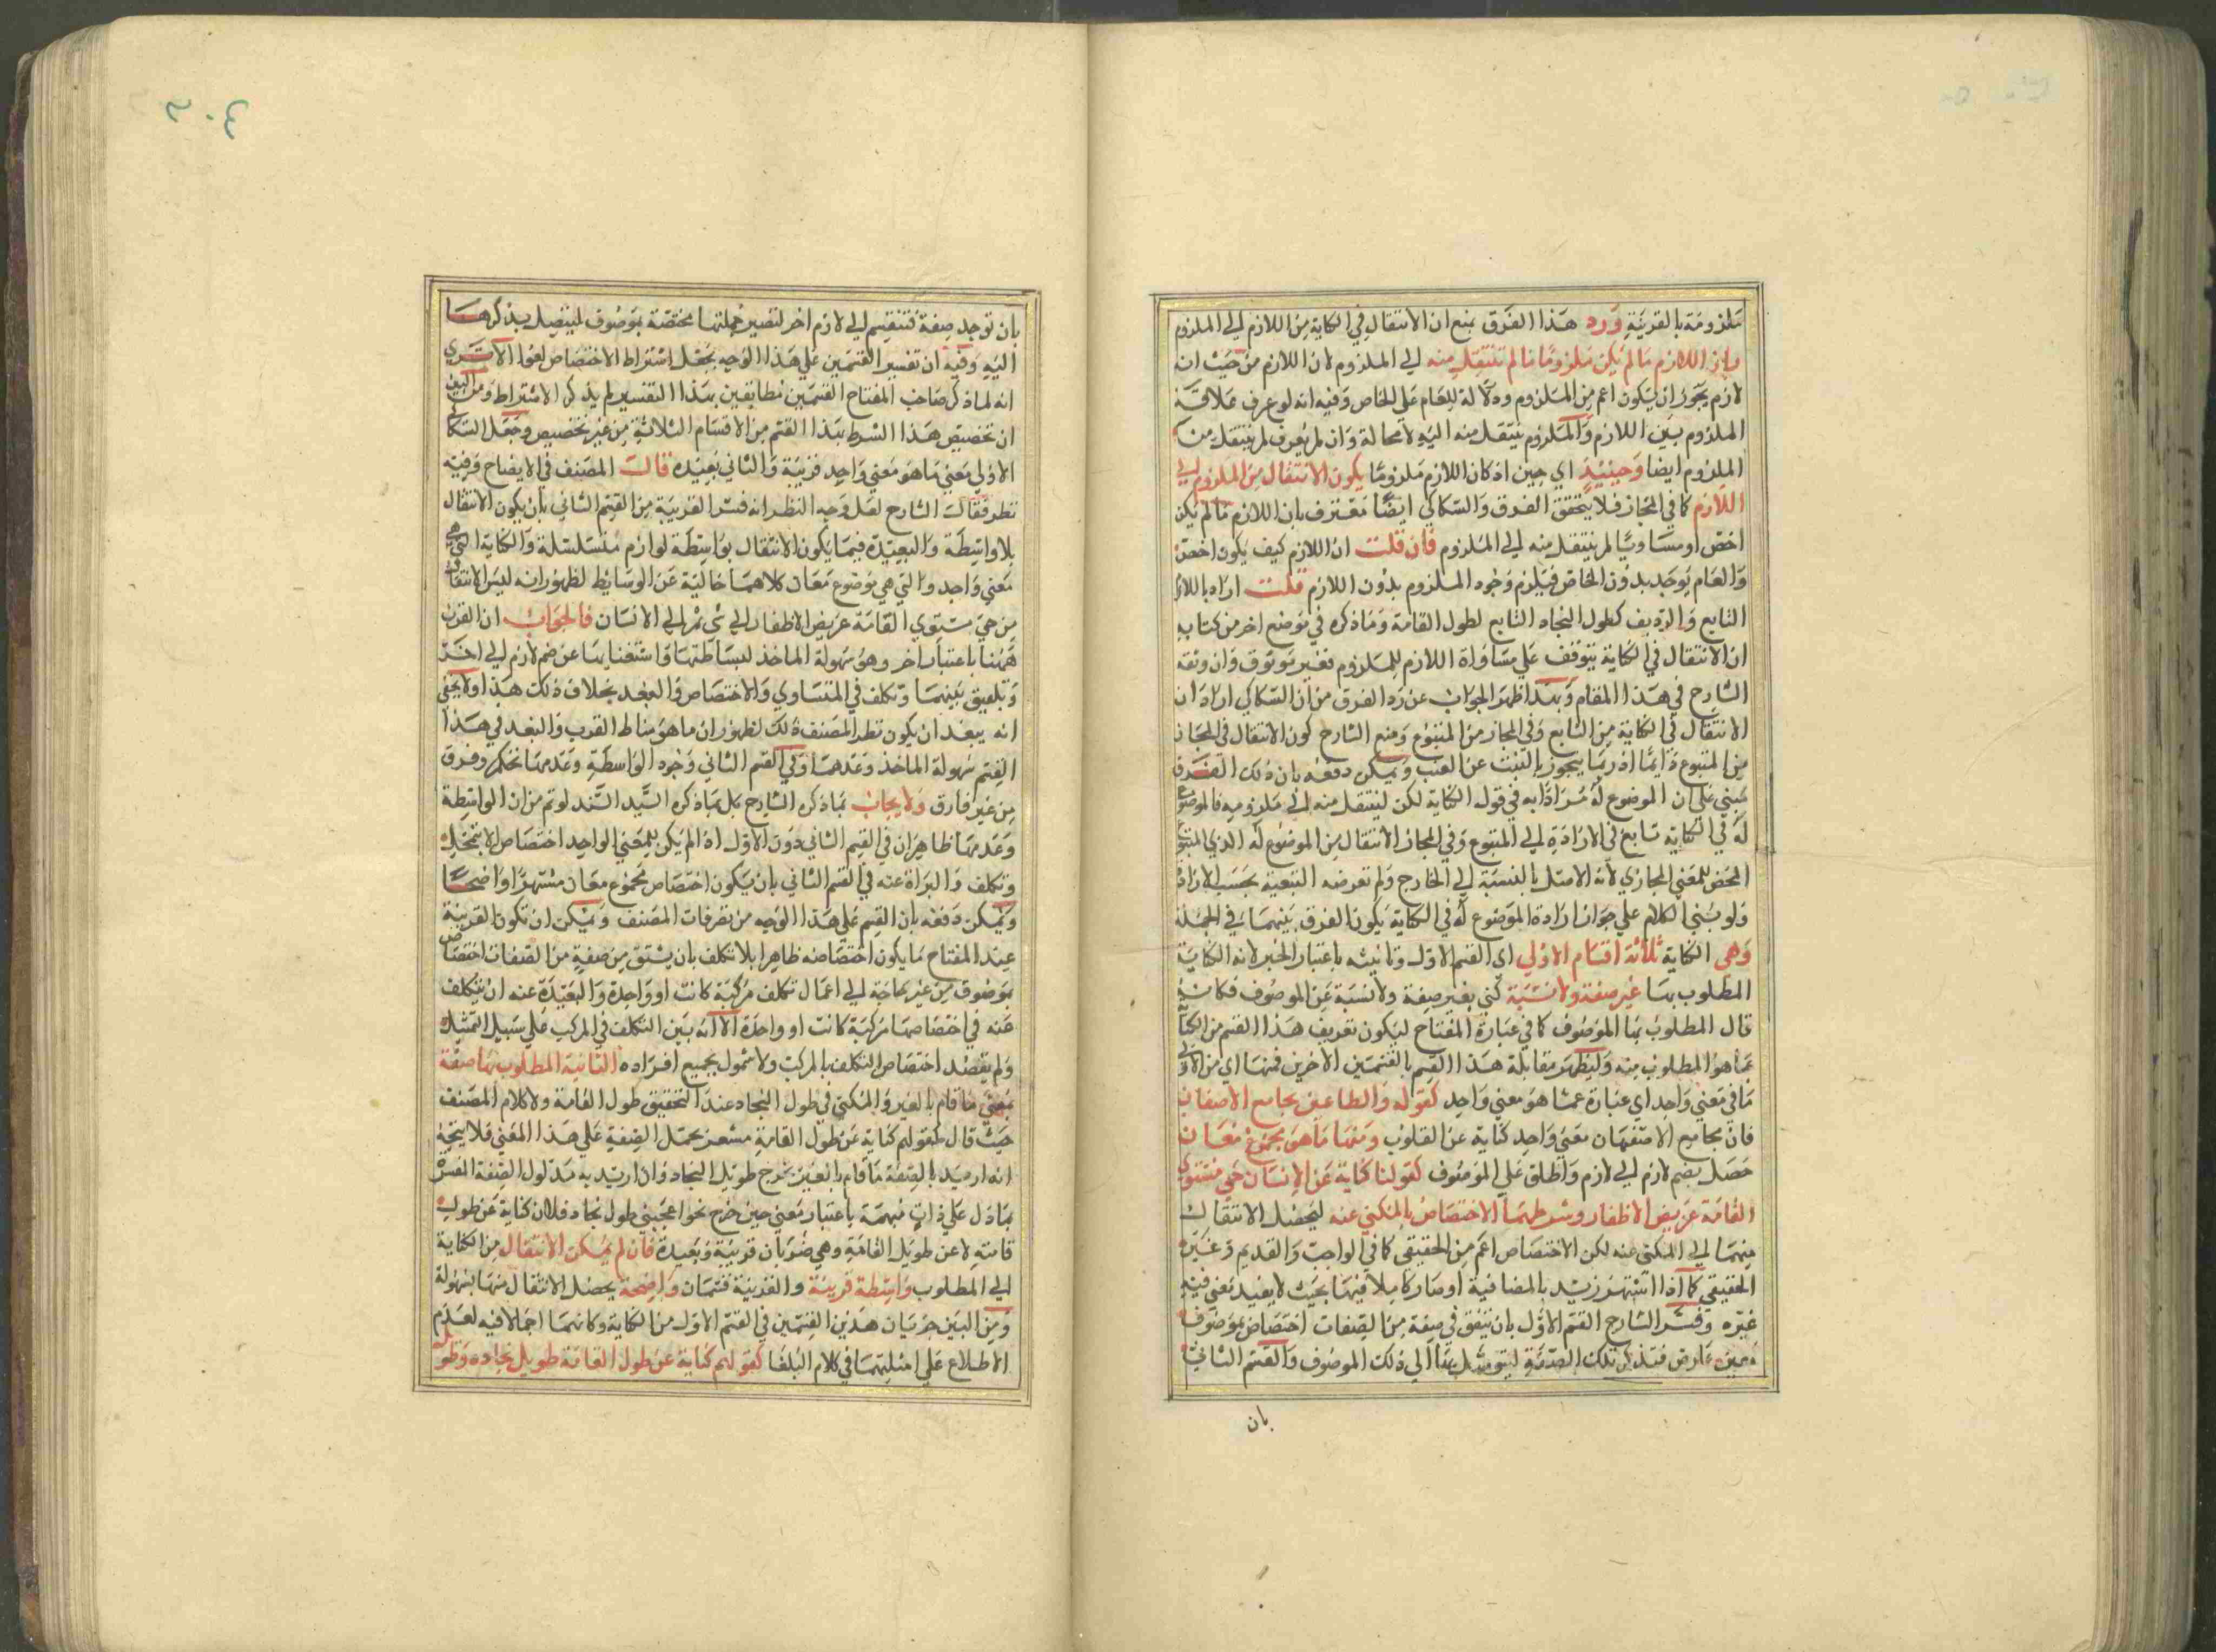 ملزومة بالقرينة ورد هذا الفرق بمنع ان الانتقال في الكناية من اللازم الي الملزوم
وان اللازم ما لم يكن ملزوما ما لم تنتقل منه الي الملزوم لان اللازم من حيث انه
لازم يجوز ان يكون اعم من الملزوم ولا دلالة للعام علي الخاص وفيه انه لو عرف علاقة
الملزوم بين اللازم والملزوم ينتقل منه اليه لا محالة وان لم يعرف لم ينتقل من
الملزوم ايضا وحينئيذ اي حين اذ كان اللازم ملزوما يكون الانتقال من الملزوم الي
اللازم كما في المجاز فلا يتحقق الفرق والسكاكي ايضا معترف بان اللازم ما لم يكن
اخص او مساويا لم ينتقل منه الي الملزوم فان قلت ان اللازم كيف يكون اخص
والعام يوجد بدون الخاص فيلزم وجود الملزوم بدون اللازم قلت اراد باللازم
التابع والرديف كطول النجاد التابع لطول القامة وما ذكره في موضع اخر من كتابه
ان الانتقال في الكناية يتوقف علي مساواة اللازم للملزوم فغير موثوق وان وثقه
الشارح في هذا المقام وبهذا ظهر الجواب عن رد الفرق من ان السكاكي اراد ان
الانتقال في الكناية من التابع وفي المجاز من المتبوع ومنع الشارح كون الانتقال في المجاز
من المتبوع دايما اذ ربما يتجوز بالنبت عن الغيث ويمكن دفعه بان ذلك الفرق
مبني علي ان الموضوع له مرادا به في قوله الكناية لكن لينتقل منه الي ملزومه فالموضوع
له في الكناية تابع في الارادة الي المتبوع وفي المجاز الانتقال من الموضوع له الذي المتبوع
المحض للمعني المجازي لانه الاصل بالنسبة الي الخارج ولم تعرضه التبعية بحسب الارادة
ولو بني الكلام علي جواز ارادة الموضوع له في الكناية يكون الفرق بينهما في الجملة
وهي الكناية ثلاثة اقسام الاولي اي القسم الاول وتانيثه باعتبار الخبر لانه الكناية
المطلوب بها غير صفة ولا نسبة كني بغير صفة ولا نسبة عن الموصوف فكانه
قال المطلوب بها الموصوف كما في عبارة المفتاح ليكون تعريف هذا القسم من الكناية
بما هو المطلوب منه وليظهر مقابلة هذا القسم بالقسمين الاخرين فمنها اي من الاولي
ما في معني واحد اي عبارة عما هو معني واحد كقوله والطاعنين بجامع الاضغان
فان مجامع الاضغان معني واحد كناية عن القلوب ومنها ما هو مجموع معان
حصل بضم لازم الي لازم واطلق علي الموصوف كقولنا كناية عن الانسان حي مستوي
القامة عريض الاظفار وشرطهما الاختصاص بالمكني عنه ليحصل الانتقال
منهما الي المكني عنه لكن الاختصاص اعم من الحقيقي كما في الواجب والقديم وغير
الحقيقي كما اذا اشتهر زيد بالمضافية او صار كاملا فيها بحيث لا يعتد بمعني فيه
غيره وفسر الشارح القسم الاول بان تتفق في صفة من الصفات اختصاص بموصوف
معين عارض فتذكر تلك الصفة ليتوصل بها الي ذلك الموصوف والقسم الثاني
بان
٣٠٤
بان توجد صفة فتنقسم الي لازم اخر لتصير جملتها مختصة بموصوف ليتصل بذكرها
اليه وفيه ان تفسير القسمين علي هذا الوجه يجعل اشتراط الاختصاص لغوا الا تري
انه لما ذكر صاحب المفتاح القسمين مطابقين بهذا التفسير لم يذكر الاشتراط ومن البين
ان تخصيص هذا الشرط بهذا القسم من الاقسام الثلاثة من غير تخصيص وجعل السكاكي
الاولي معني ما هو معني واحد قريبة والثاني بعيدة قال المصنف في الايضاح وفيه
نظر فقال الشارح لعل وجه النظر انه فسر القريبة من القسم الثاني بان يكون الانتقال
بلا واسطة والبعيدة فيما يكون الانتقال بواسطة لوازم متسلسلة والكناية التي هي
معني واحد والتي هي موضوع معان كلاهما خالية عن الوسائط لظهور انه ليس الانتقال
من حي مستوي القامة عريض الاظفار الي شي ثم الي الانسان فالجواب ان القرب
ههنا باعتبار اخر وهو سهولة الماخذ لبساطتها واستغنايها عن ضم لازم الي اخر
وتلفيق بينهما وتكلف في التساوي والاختصاص والبعد بخلاف ذلك هذا ولا يخفي
انه يبعد ان يكون نظر المصنف ذلك لظهور ان ما هو مناط القرب والبعد في هذا
القسم سهولة الماخذ وعدمها وفي القسم الثاني وجود الواسطة وعدمها تحكم وفرق
من غير فارق ولا يجاب بما ذكره الشارح بل بما ذكره السيد السند لو تم من ان الواسطة
وعدمها ظاهران في القسم الثاني دون الاول اذ لم يكن للمعني الواحد اختصاص الا بتخيل
وتكلف والبراة عنه في القسم الثاني بان يكون اختصاص مجموع معان مشتهرا واضحا
ويمكن دفعه بان القسم علي هذا الوجه من تصرفات المصنف ويمكن ان تكون القريبة
عند المفتاح ما يكون اختصاصه ظاهرا بلا تكلف بان يشتق من صفة من الصفات اختصاص
بموصوف من غير حاجة الي اعمال تكلف مركبة كانت او واحدة والبعيدة عنه ان تتكلف
عنه في اختصاصها مركبة كانت او واحدة الا انه بين التكلف في المركب علي سبيل التمثيل
ولم يقصد اختصاص التكلف بالمركب ولا شمول بجميع افراده الثانية المطلوب بها صفة
معني ما قام بالغير والمكني في طول النجاد عند التحقيق طول القامة ولا كلام المصنف
حيث قال كقولهم كناية عن طول القامة مشعر بحمل الصفة علي هذا المعني فلا يتجه
انه اريد بالصفة ما قام بالغير يخرج طويل النجاد وان اريد به مدلول الصفة المفسر
بما دل علي ذات مبهمة باعتبار معني حين خرج نحو اعجبني طول نجاد فلان كناية عن طول
قامته لا عن طويل القامة وهي ضربان قريبة وبعيدة فان لم يمكن الانتقال من الكناية
الي المطلوب واسطة قريبة والقريبة قسمان واضحة يحصل الانتقال منها بسهولة
ومن البين جريان هذين القسمين في القسم الاول من الكناية وكانهما اجمالا فيه لعدم
الاطلاع علي امثلتهما في كلام البلغا كقولهم كناية عن طول القامة طويل نجاده وطويل